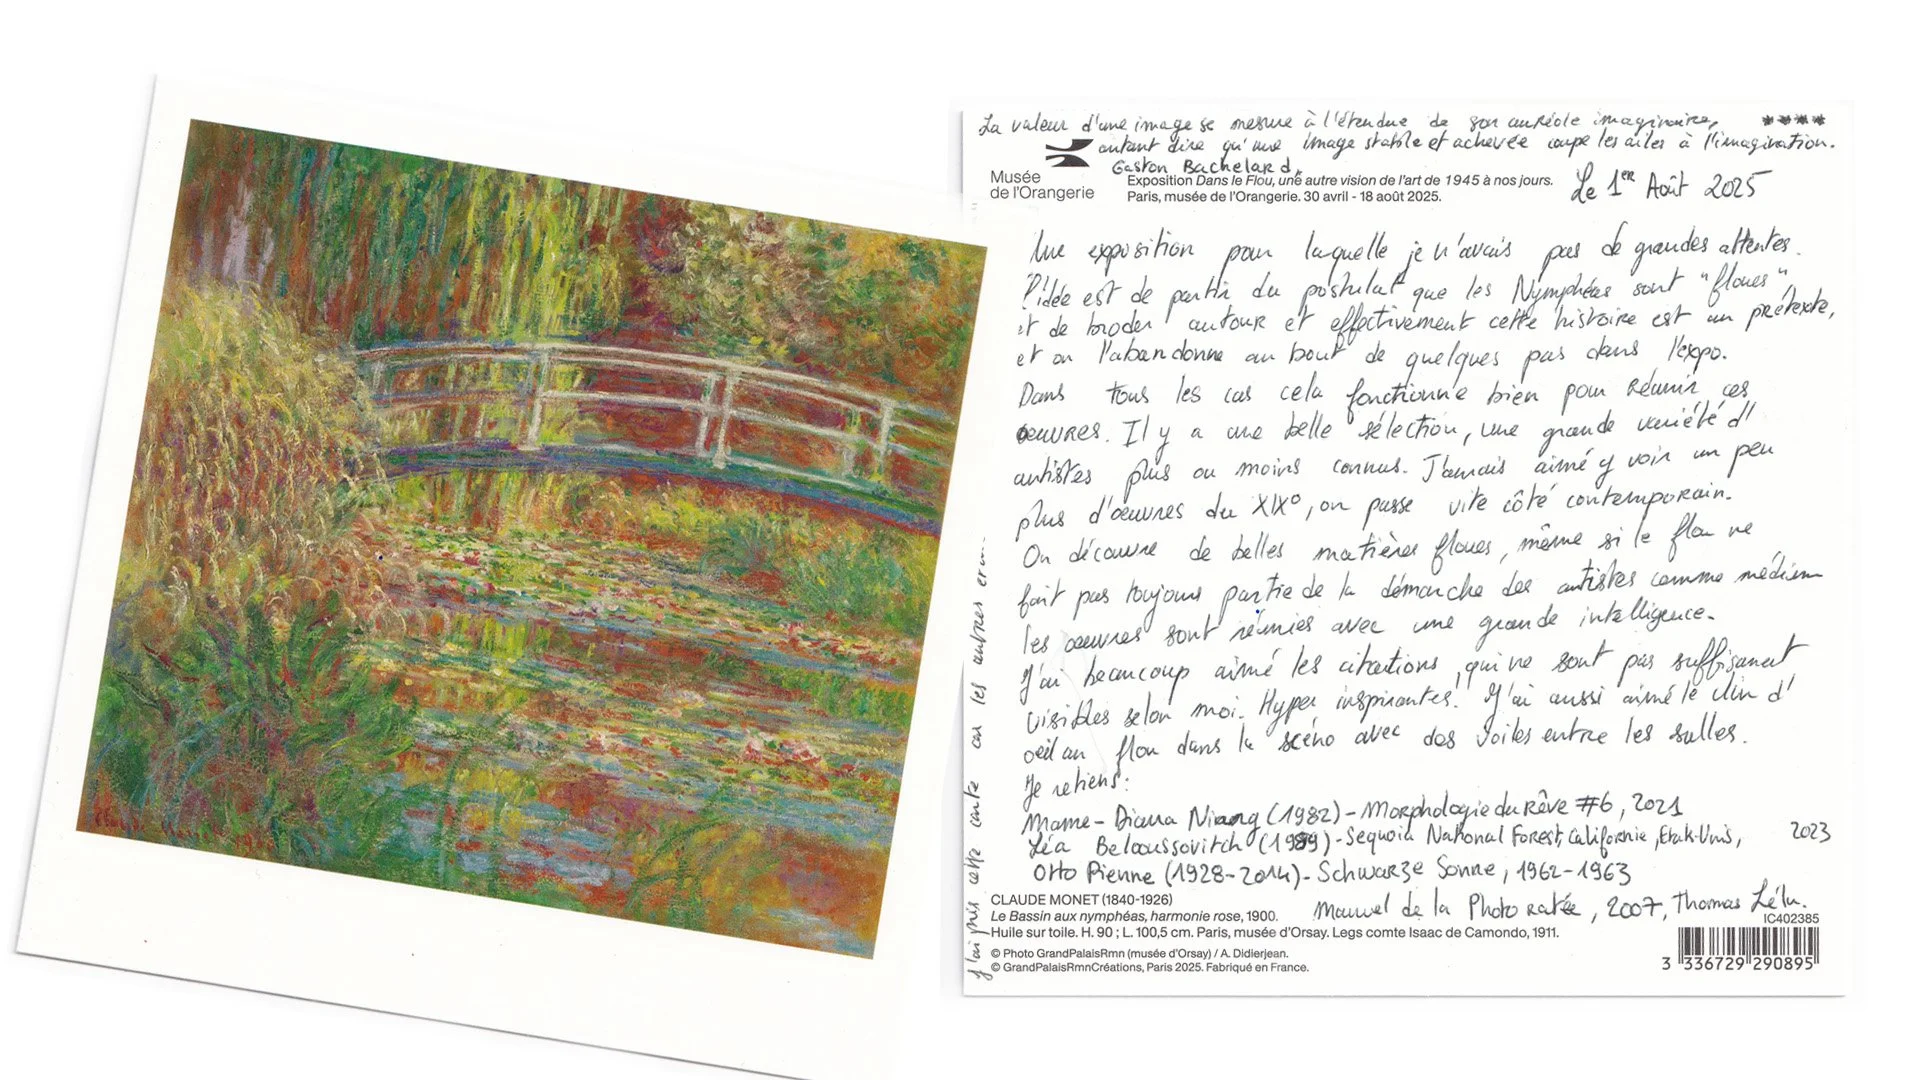 La valeur d'une image se mesure à l'étendue de son auréole imaginaire, ****
autant dire qu'une image stable et achevée coupe les ailes à l'imagination.
Gaston Bachelard.
Musée
de l'Orangerie
Exposition Dans le Flou, une autre vision de l'art de 1945 à nos jours.
Paris, musée de l'Orangerie. 30 avril - 18 août 2025.
Le 1er Août 2025
Une exposition pour laquelle je n'avais pas de grandes attentes.
l'idée est de partir du postulat que les Nymphéas sont "floues"
et de broder autour et effectivement cette histoire est un prétexte,
et on l'abandonne au bout de quelques pas dans l'expo.
Dans tous les cas cela fonctionne bien pour réunir ces
œuvres. Il y a une belle sélection, une grande variété d'
artistes plus ou moins connus. J'aurais aimé y voir un peu
plus d'œuvres du XIX°, on passe vite côté contemporain.
On découvre de belles matières floues, même si le flou ne
fait pas toujours partie de la démarche des artistes comme médium
les œuvres sont réunies avec une grande intelligence.
J'ai beaucoup aimé les citations, qui ne sont pas suffisament
visibles selon moi. Hyper inspirantes! J'ai aussi aimé le clin d'
œil au flou dans la scéno avec des voiles entre les salles.
Je retiens:
Mame-Diarra Niang (1982) - Morphologie du Rêve #6, 2021
Léa Belooussovitch (1989) - Sequoia National Forest, Californie, Etats-Unis, 2023
Otto Pienne (1928-2014) - Schwarze Sonne, 1962-1963
Manuel de la Photo ratée, 2007, Thomas Lélu.
CLAUDE MONET (1840-1926)
Le Bassin aux nymphéas, harmonie rose, 1900.
Huile sur toile. H. 90 ; L. 100,5 cm. Paris, musée d'Orsay. Legs comte Isaac de Camondo, 1911.
© Photo GrandPalaisRmn (musée d'Orsay) / A. Didierjean.
© GrandPalaisRmnCréations, Paris 2025. Fabriqué en France.
IC402385
3 336729 290895
J'ai pris cette carte car les autres
Claude Monet